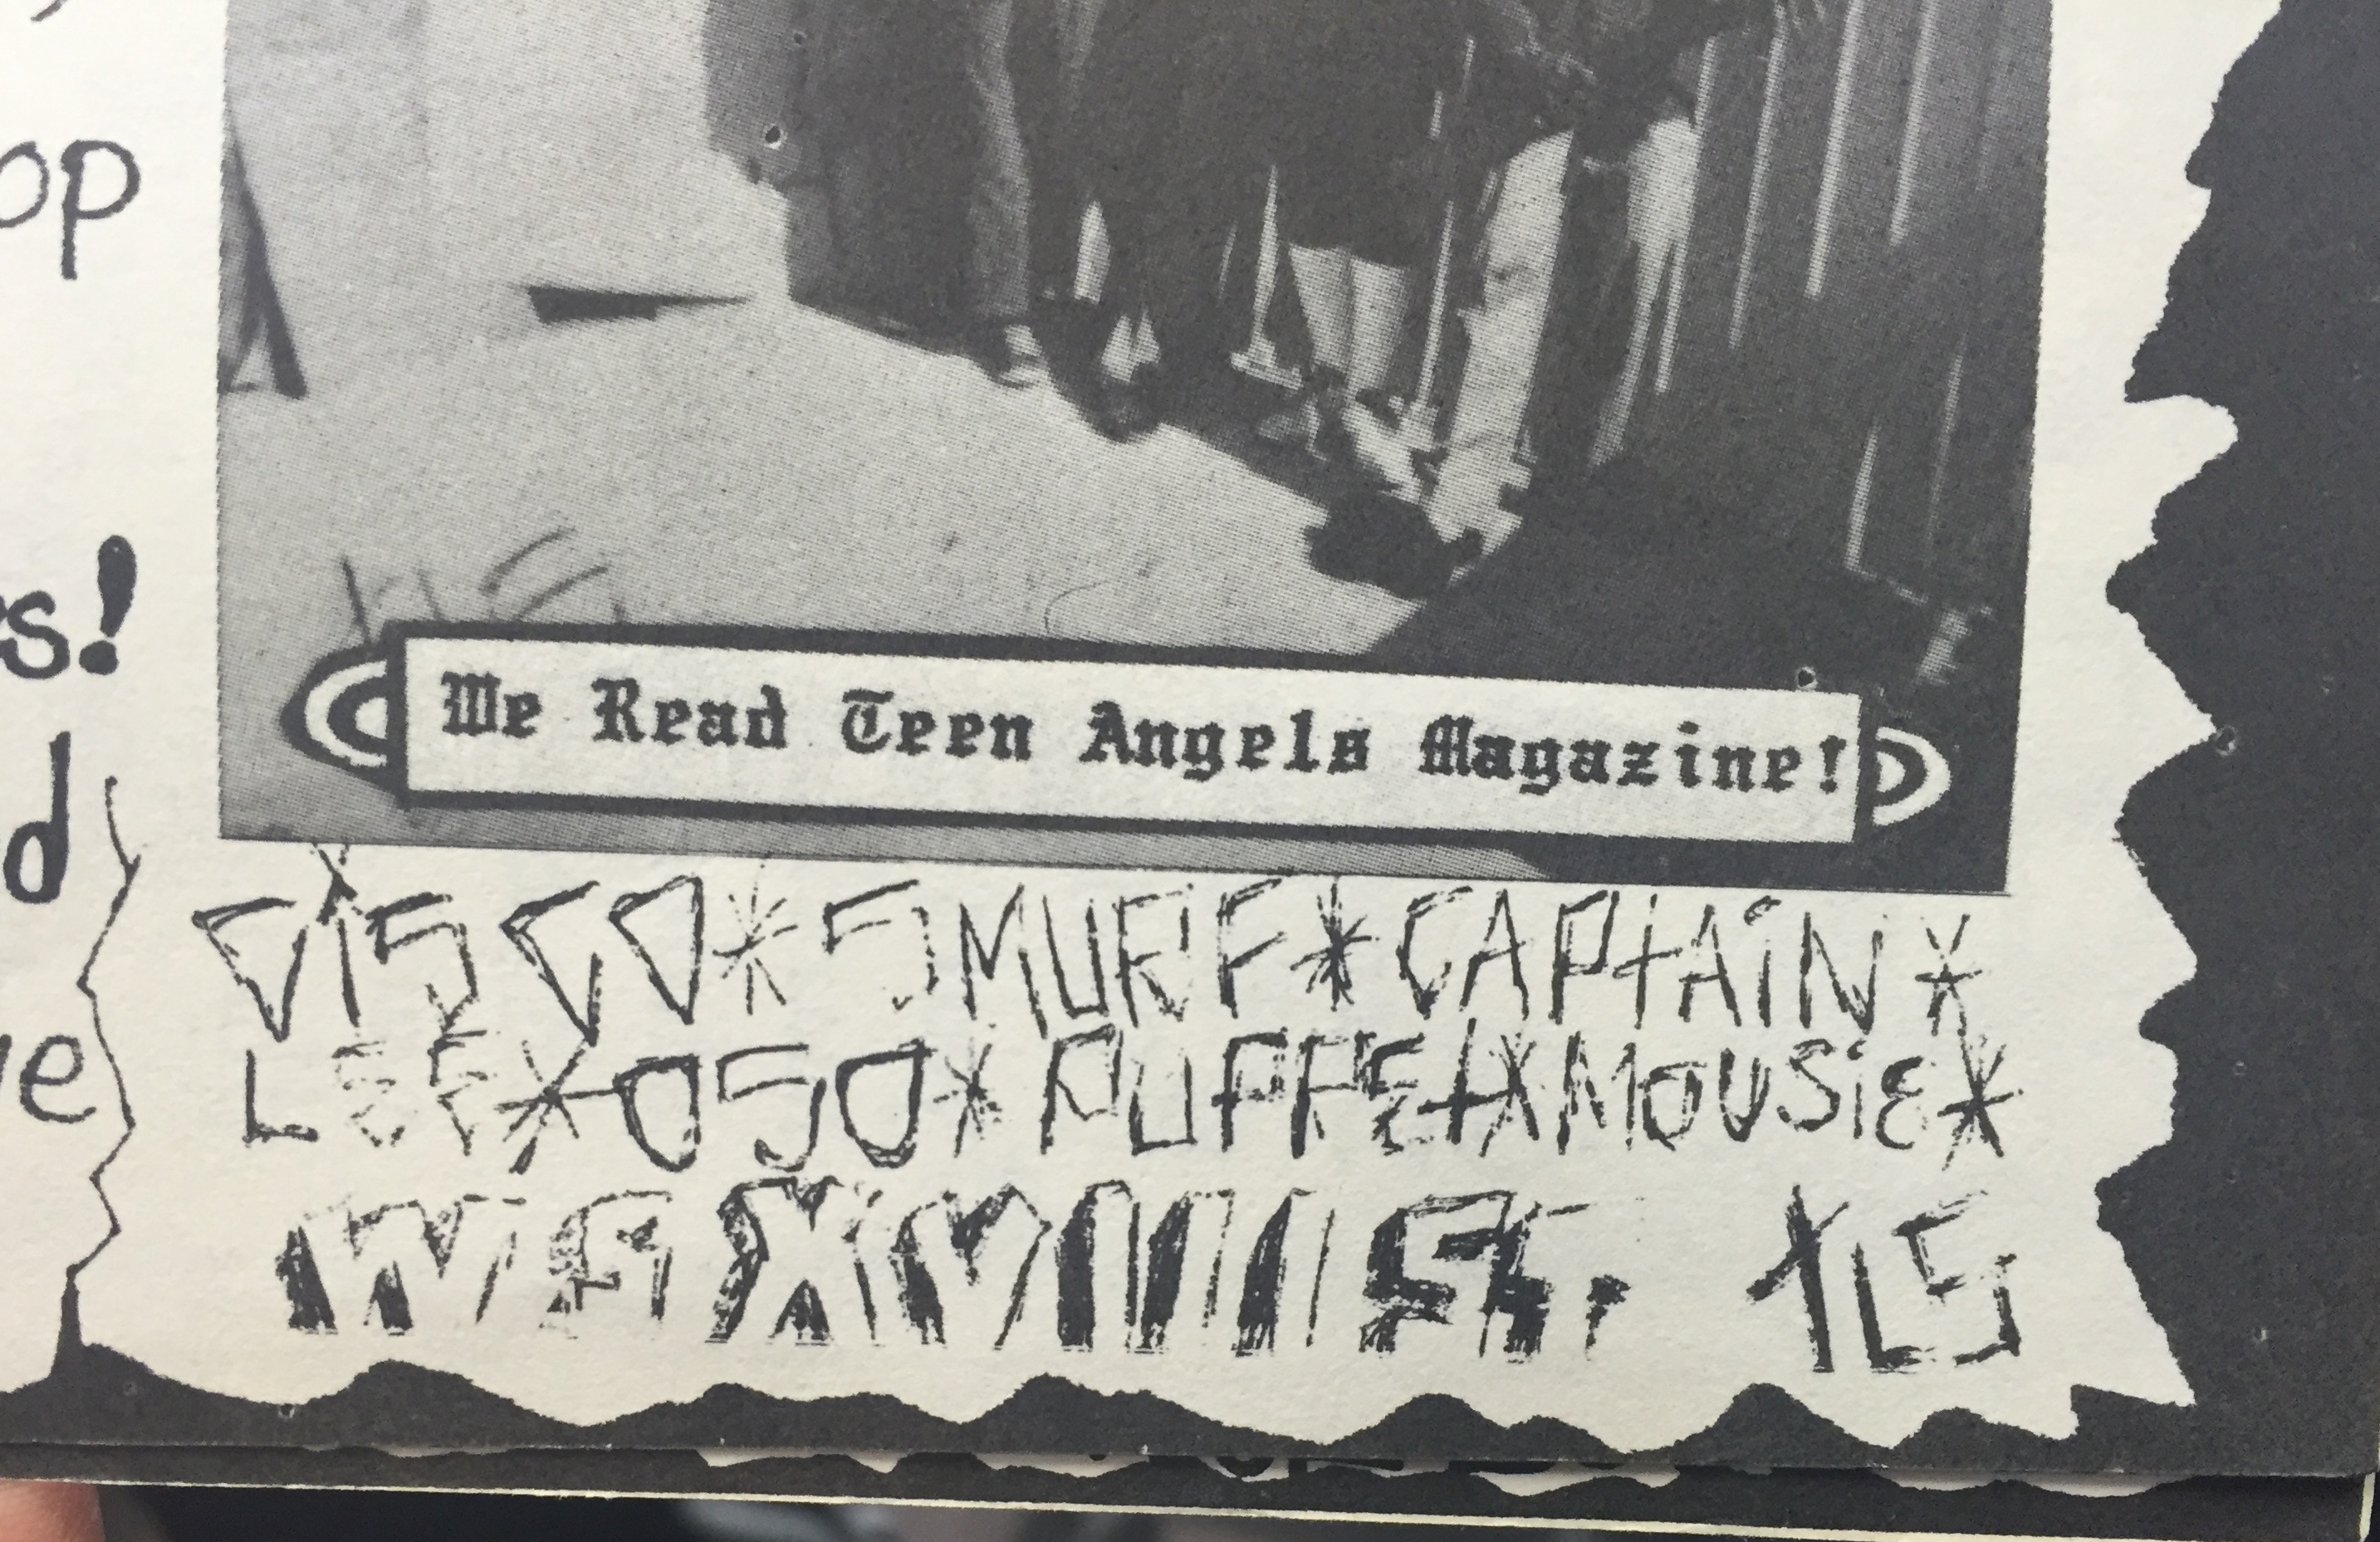 op
s!
d
e
We Read Teen Angels Magazine!
*SMURF*CAPtAiN*
LEE*OSO*PUPPEt*MOUSiE*
XVIII ST.